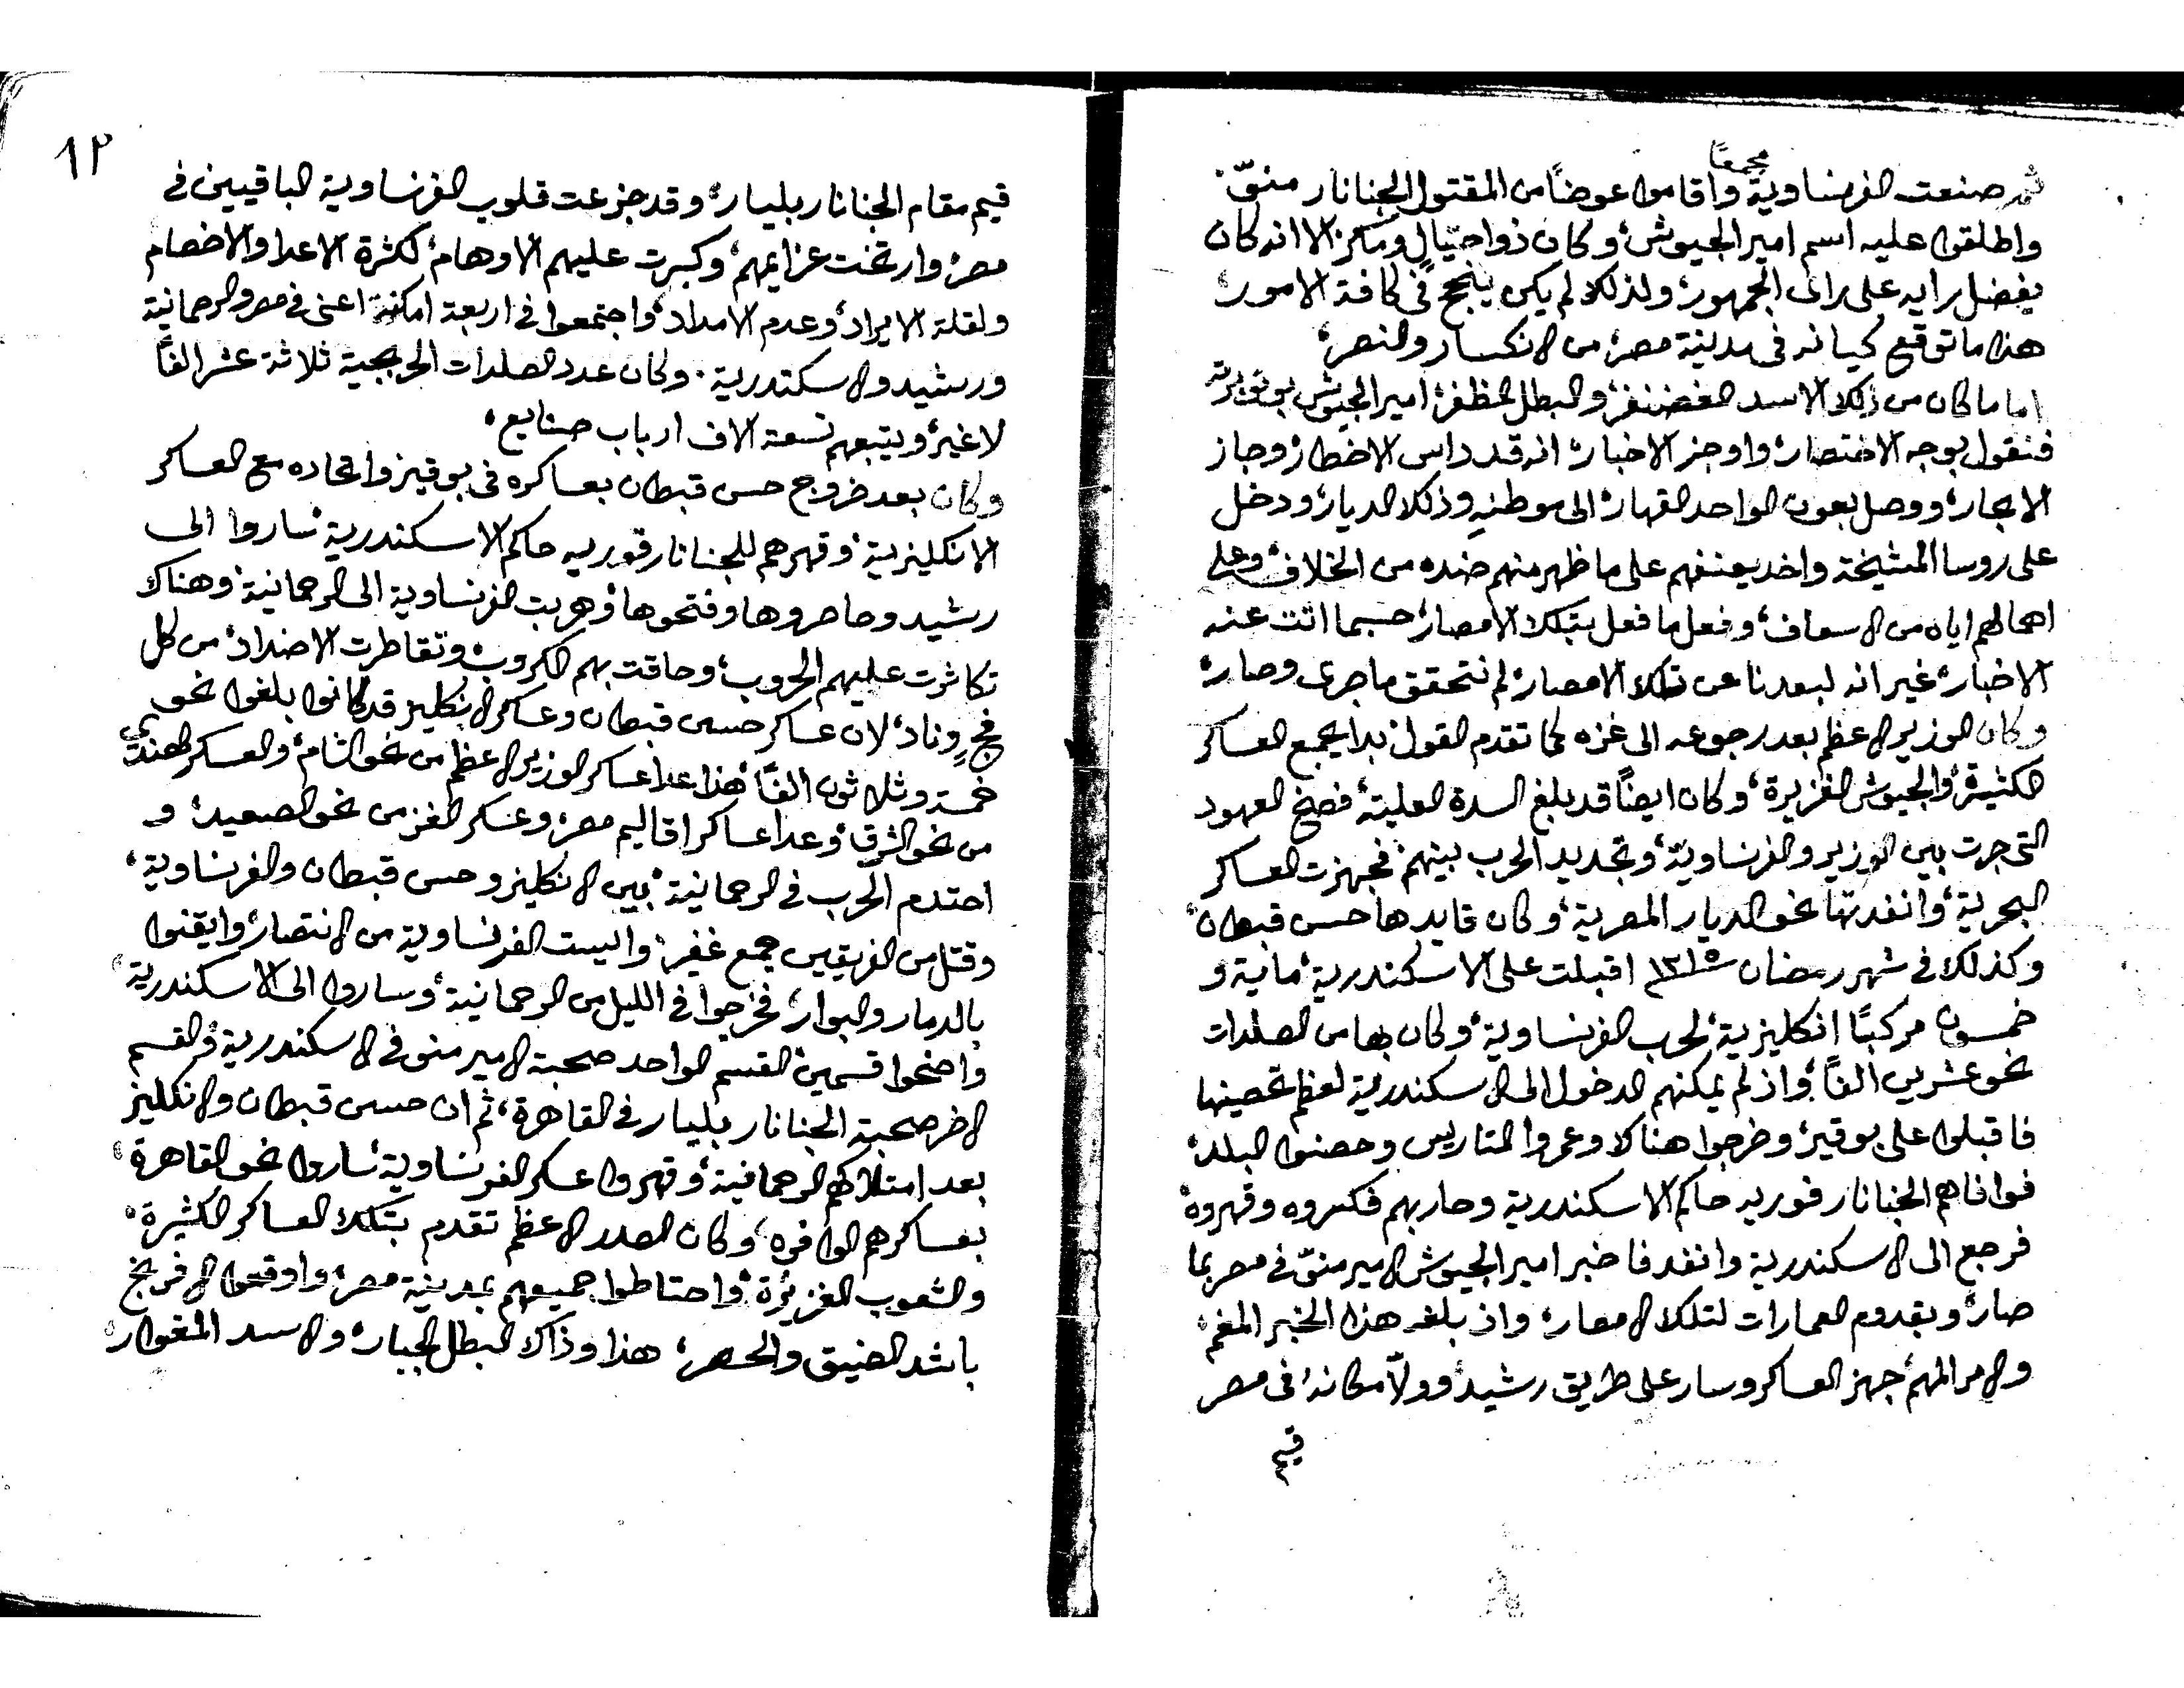 مجمعًا
ثم صنعت الفرنساوية واقاموا عوضًا من المقتول الجنانار منوّ،
واطلقوا عليه اسم امير الجيوش، وكان ذو احتيالٍ ومكر، الا انه كان
يفضل رايه على راى الجمهور، ولذلك لم يكن ينجح فى كافة الامور،
هذا ما توقع كيانه فى مدينة مصر، من الانكسار والنصر،
اما ما كان من ذلك الاسد الغضنفر، والبطل المظفر، امير الجيوش بونابرته
فنقول بوجه الاختصار، واوجز الاخبار، انه قد داس الاخطار، وجاز
الابحار، ووصل بعون الواحد القهار، الى موطنهِ وذلك الديار، ودخل
على روسا المشيخة واخد يعنفهم على ما ظهر منهم ضده من الخلاف، وعلى
اهمالهم اياه من الاسعاف، وفعل ما فعل بتلك الامصار، حسبما اتت عنه
الاخبار، غير انه لبعدنا عن تلك الامصار، لم نتحقق ما جرى وصار،
وكان الوزير الاعظم بعد رجوعه الى غزه كما تقدم القول، بدا يجمع العساكر
الكثيرة، والجيوش الغزيرة، وكان ايضًا قد بلغ السدة العلية، فصخ العهود
التى جرت بين الوزير والفرنساوية، وتجديد الحرب بينهم، فجهزت العساكر
البحرية، وانفدتها نحو الديار المصرية، وكان قايدها حسن قبطان،
وكذلك فى شهر رمضان سنة ١٢١٥ اقبلت على الاسكندرية، ماية و
خمسون مركبًا انكليزية، لحرب الفرنساوية، وكان بها من الصلدات
نحو عشرين الفًا، واذ لم يمكنهم الدخول الى الاسكندرية لعظم تحصينها
فاقبلوا على بوقير، وخرجوا هناك وعمروا المتاريس وحصنوا البلد،
فوافاهم الجنانار فوريه حاكم الاسكندرية وحاربهم فكسروه وقهروه،
فرجع الى الاسكندرية وانفد فاخبر امير الجيوش الامير منوّ فى مصر بما
صار، وبقدوم العمارات لتلك الامصار، واذ بلغه هذا الخبر المغم،
والامر المهم، جهز العساكر وسار على طريق رشيد، وولاّ مكانه، فى مصر
قيم
١٢
قيم مقام الجنانار بليار، وقد جزعت قلوب الفرنساوية الباقيين فى
مصر، وارتخت عزايمهم، وكبرت عليهم الاوهام، لكثرة الاعدا والاخصام
ولقلة الايراد، وعدم الامداد، واجتمعوا فى اربعة امكنة اعنى فى مصر والرحمانية
ورشيد والاسكندرية، وكان عدد الصلدات الحربجية ثلاثة عشر الفًا
لا غير، ويتبعهم تسعة الاف ارباب صنايع،
وكان بعد خروج حسن قبطان بعساكره فى بوقير، واتحاده مع العساكر
الانكليزية، وقهرهم للجنانار فوريه حاكم الاسكندرية، ساروا الى
رشيد وحاصروها وفتحوها، وهربت الفرنساوية الى الرحمانية، وهناك
تكاثرت عليهم الحروب، وحاقت بهم الكروب، وتقاطرت الاضداد، من كل
فجٍ وناد، لان عساكر حسن قبطان وعساكر الانكليز قد كانوا بلغوا نحو
خمسة وثلاثون الفًا، هذا عدا عساكر الوزير الاعظم من نحو الشام، والعسكر الهندى
من نحو الشرق، وعدا عساكر اقاليم مصر، وعسكر الغز من نحو الصعيد، و
احتدم الحرب فى الرحمانية، بين الانكليز وحسن قبطان والفرنساوية،
وقتل من الفريقين جمع غفير، وايست الفرنساوية من الانتصار، وايقنوا
بالدمار والبوار، فخرجوا فى الليل من الرحمانية، وساروا الى الاسكندرية،
واضحوا قسمين، القسم الواحد صحبة الامير منو فى الاسكندرية، والقسم
الاخر صحبة الجنانار بليار فى القاهرة، ثم ان حسن قبطان والانكليز
بعد امتلاكهم الرحمانية، وقهروا عسكر الفرنساوية، ساروا نحو القاهرة،
بعساكرهم الوافره، وكان الصدر الاعظم تقدم بتلك العساكر الكثيرة،
والشعوب الغزيرة، واحتاطوا جميعهم بمدينة مصر، واوقعوا الافرنج
باشد الضيق والحصر، هذا وذاك البطل الجبار، والاسد المغوار،